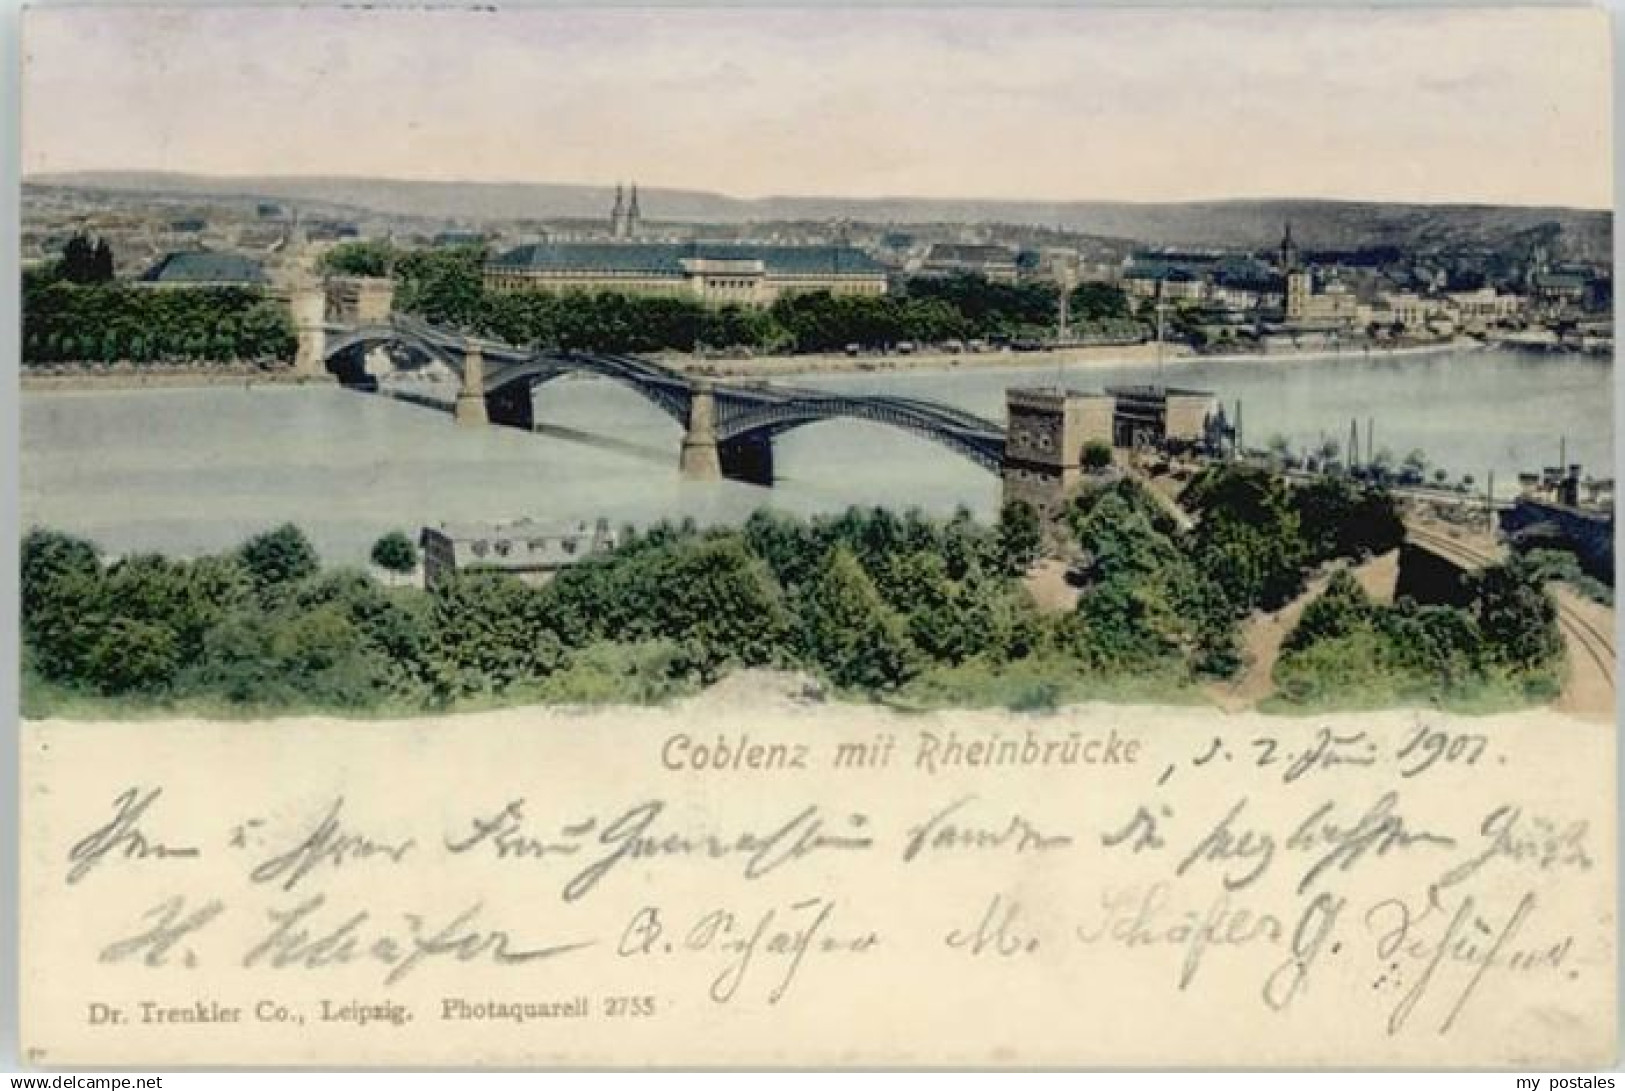 Coblenz mit Rheinbrücke, d. 2. Juni 1901.
Frau senden die herzlichsten Grüße
H. Schäfer A. Schäfer M. Schäfer G. Schäfer.
Dr. Trenkler Co., Leipzig. Photaquarell 2755
www.delcampe.net
my_postales